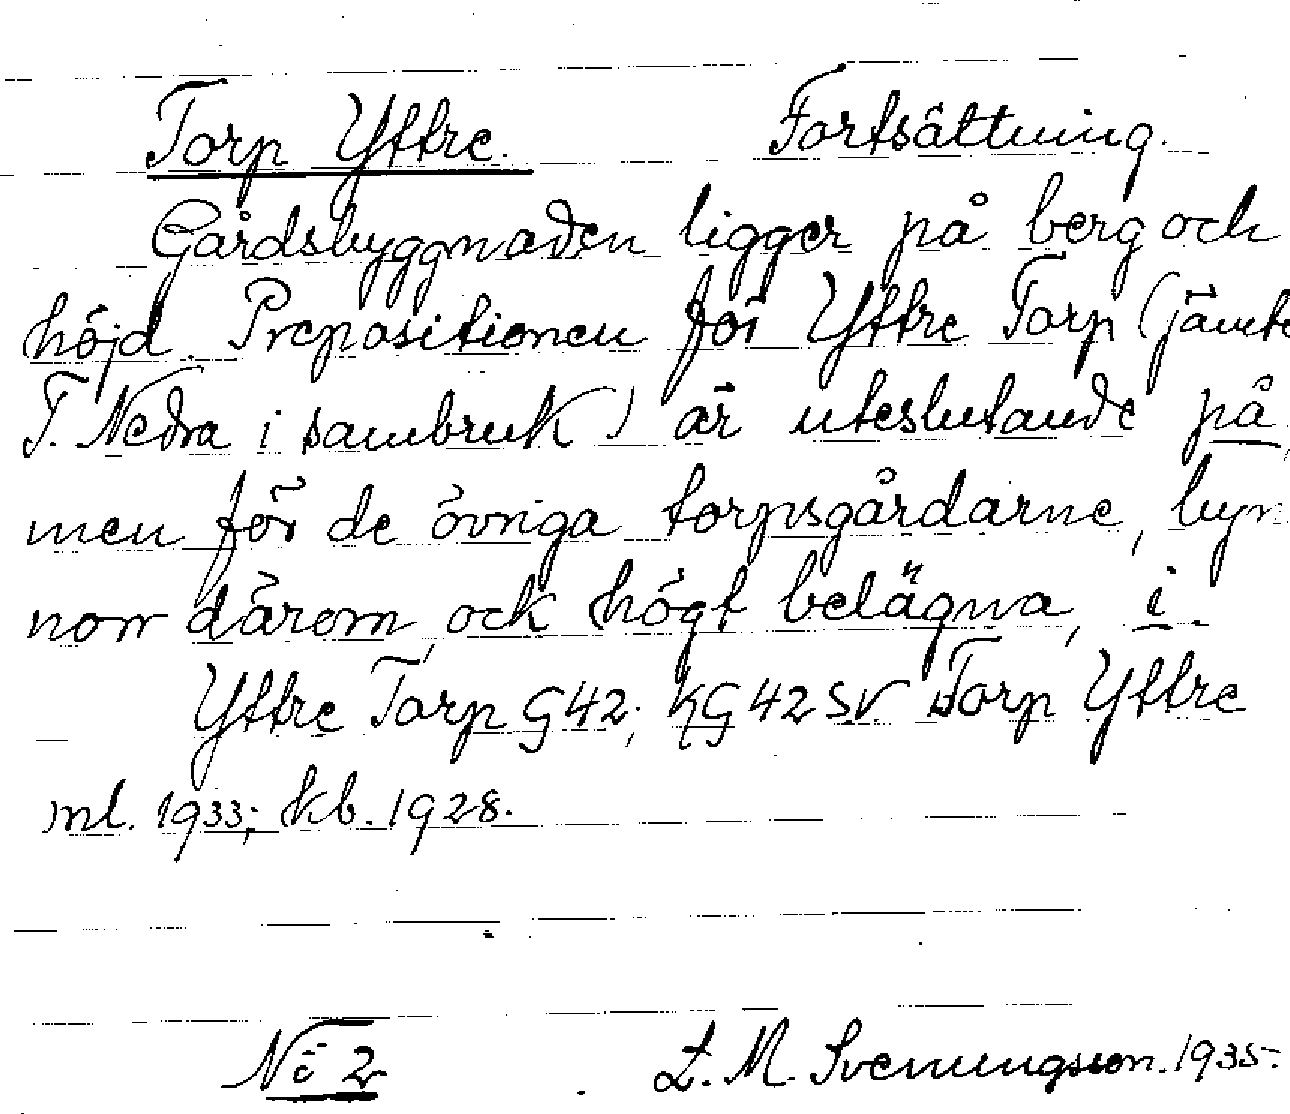 Torp Yttre. Fortsättning.
Gårdsbyggnaden ligger på berg och
höjd. Prepositionen för Yttre Torp (jämte
T. Nedra i sambruk) är uteslutande på,
men för de övriga torpsgårdarne,
norr därom, ock högt belägna, i.
Yttre Torp G42; KG42SV Torp Yttre
ml. 1933; kb. 1928.
No 2 L. M. Svenungsson. 1935.